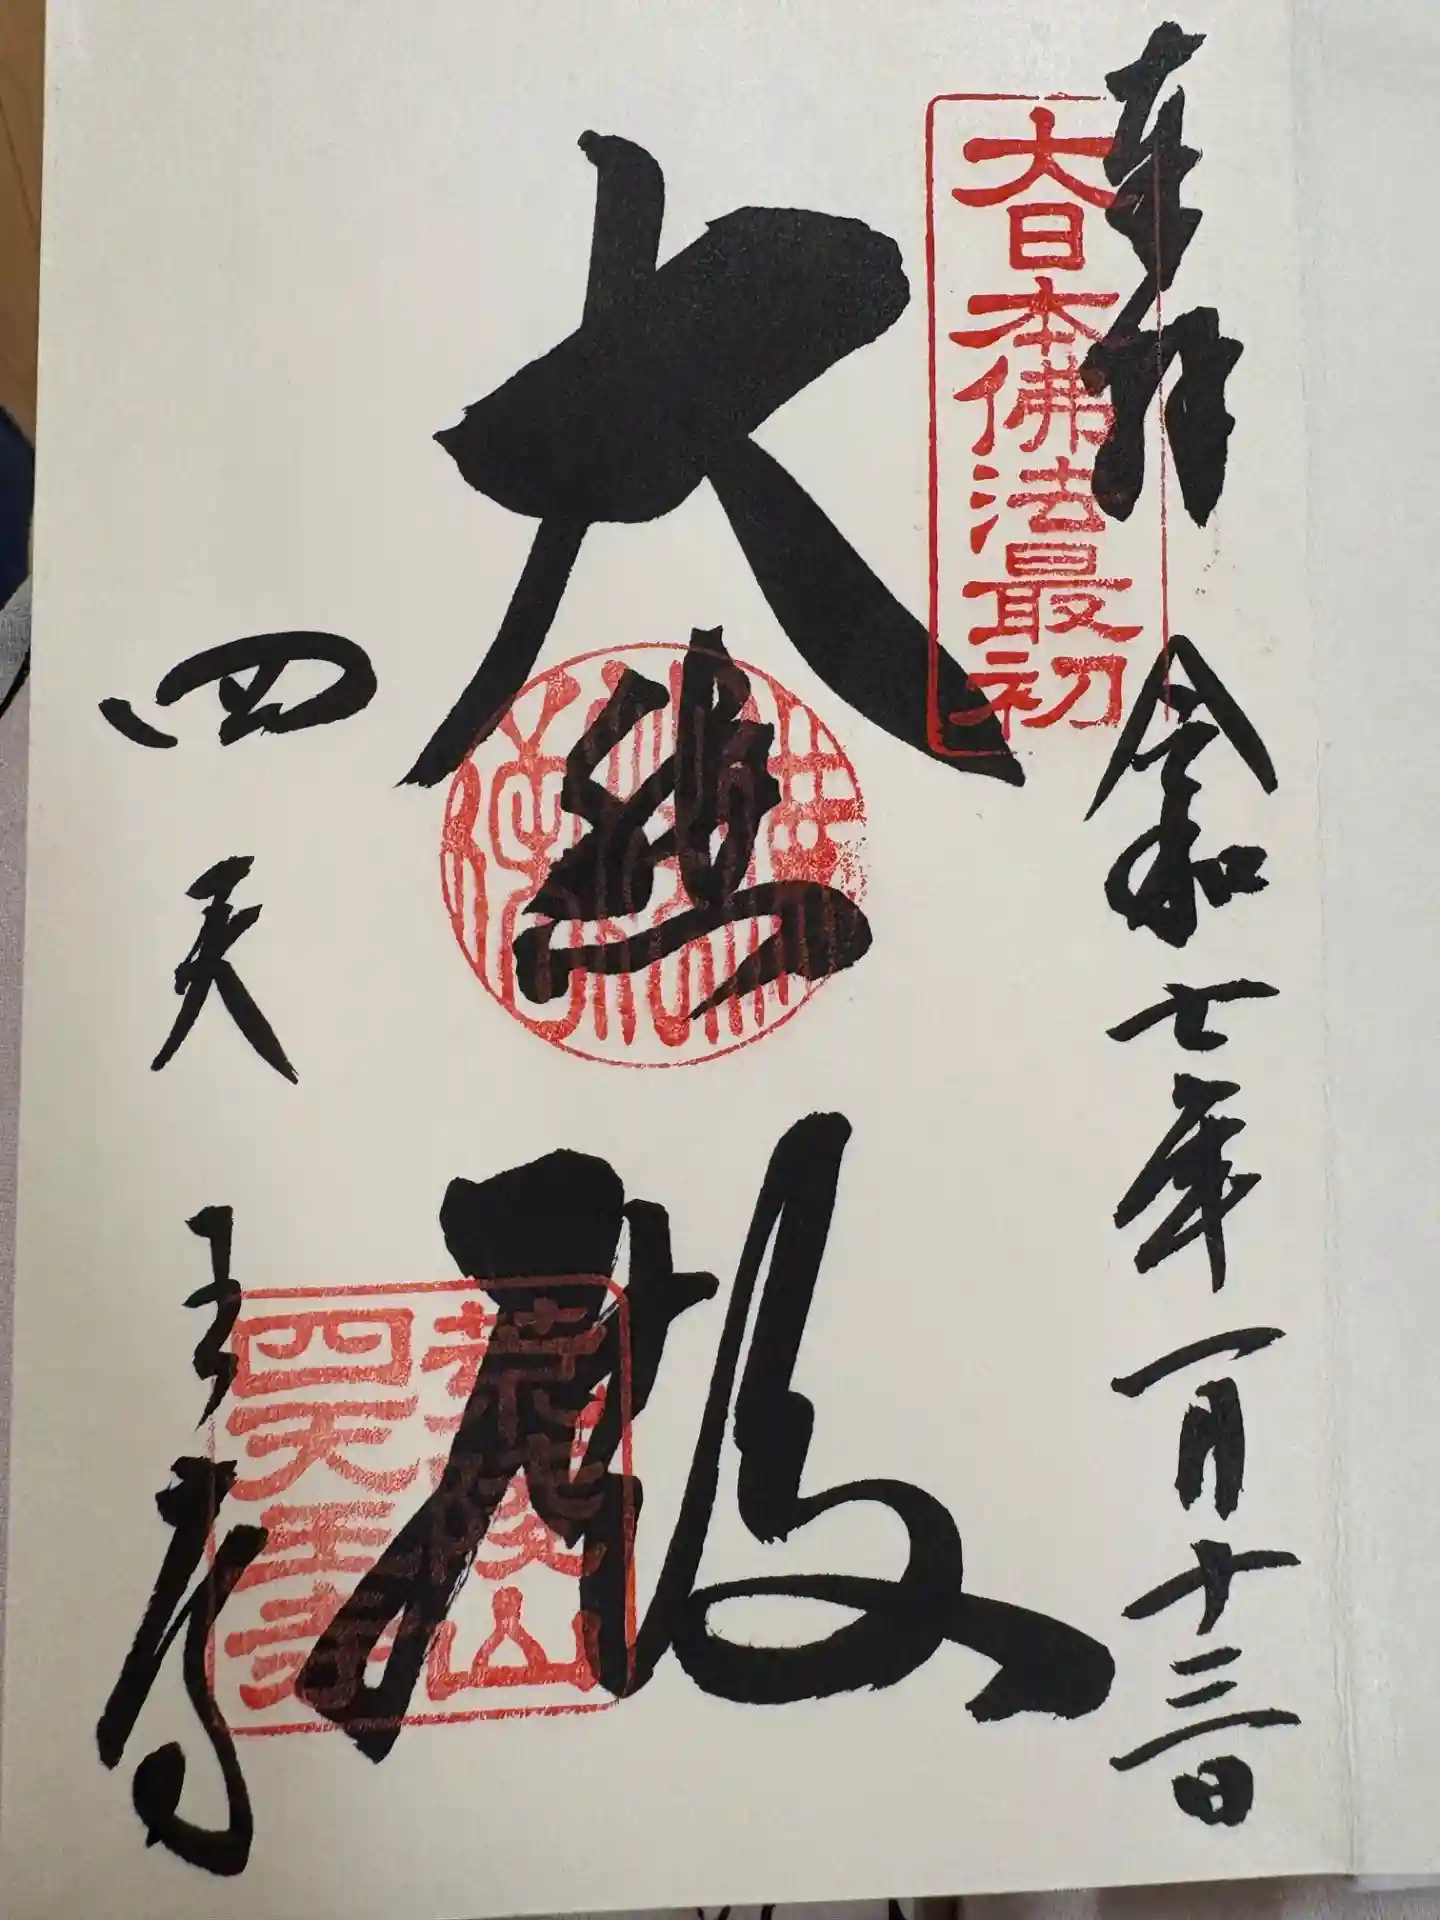 奉拝
令和七年一月十三日
大日本佛法最初
大悲殿
四天王寺
荒陵山
四天王寺